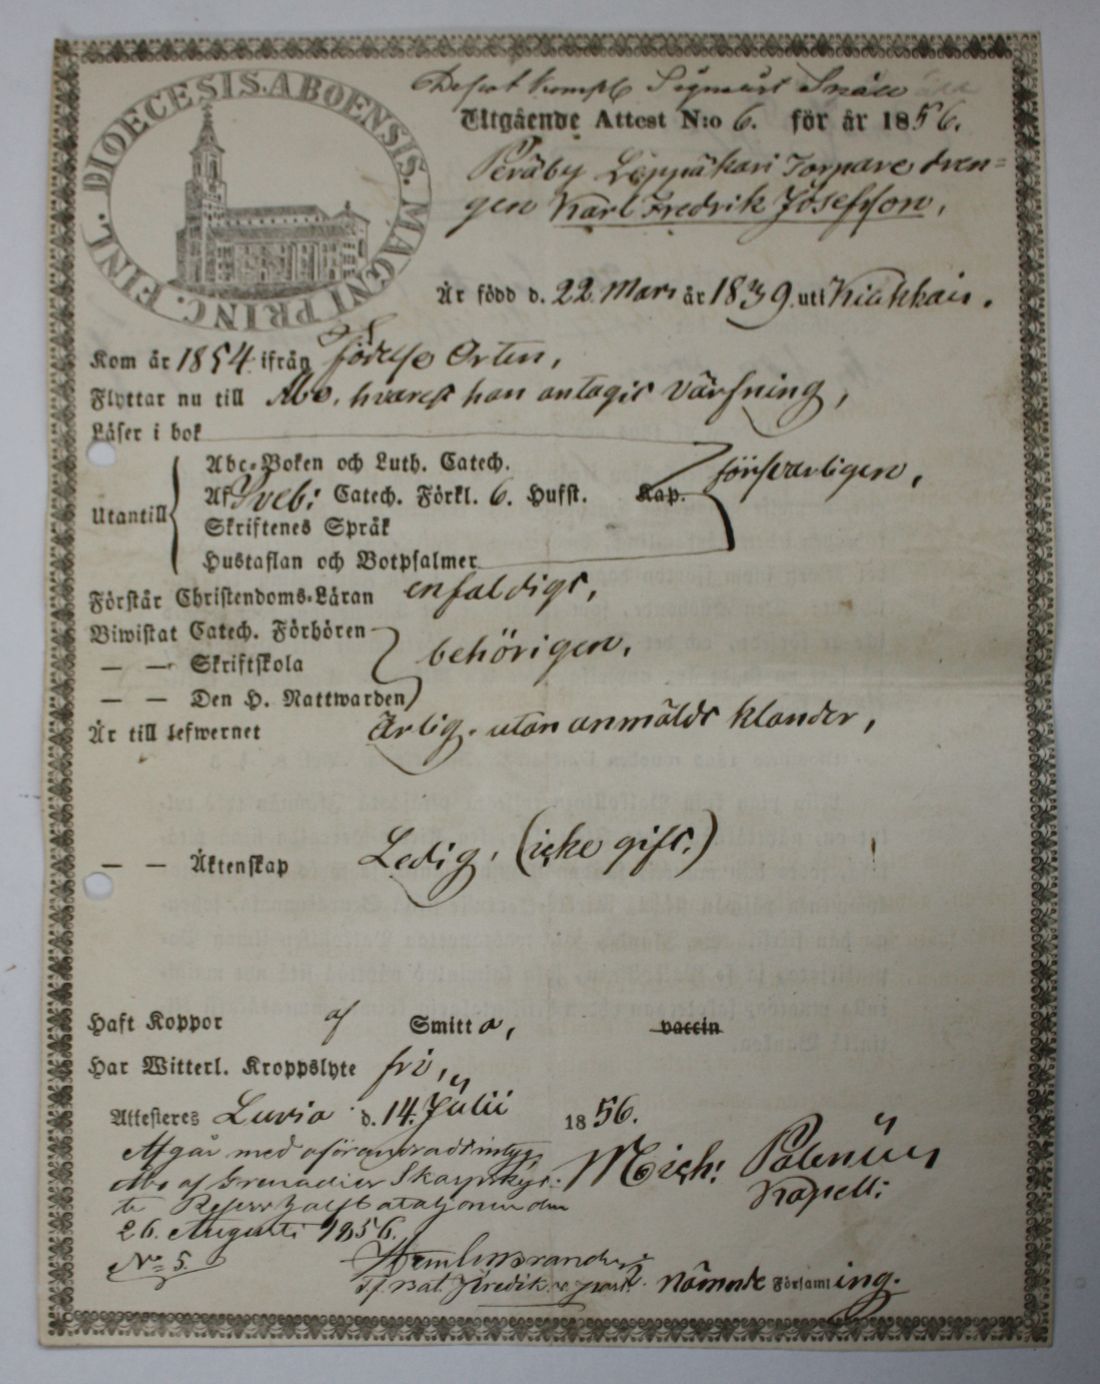 DIOECESIS. ABOENSIS. MAGNI PRINC. FINL.
Utgående Attest N:o 6. för år 1856.
Peräby Leppäkari Torpare dren=
gen Karl Fredrik Josefsson,
Är född d. 22 Mars år 1839 uti Kiukkais.
Kom år 1854 ifrån födelse Orten,
Flyttar nu till Åbo, hvarest han antagit värfning,
Läser i bok
Utantill
Abc-Boken och Luth. Catech.
försvarligen,
Af Sveb: Catech. Förkl. 6. Hufst. Kap.
Skriftenes Språk
Hustaflan och Botpsalmer
Förstår Christendoms-Läran enfaldigt,
Biwistat Catech. Förhören
— — Skriftskola behörigen,
— — Den H. Nattwarden
Är till lefwernet Ärlig, utan anmäldt klander,
— — Äktenskap Ledig, (icke gift.)
Haft Koppor af Smitta, vaccin
Har Witterl. Kroppslyte fri,
Attesteres Luvia d. 14. Julii 1856.
Mich: Palenius
Kapell:
Afgår med
Åbo af Grenadier Skarpskyt-
te Reserv bataljonen den
26. Augusti 1856.
No 5.
Nämnde Församling.